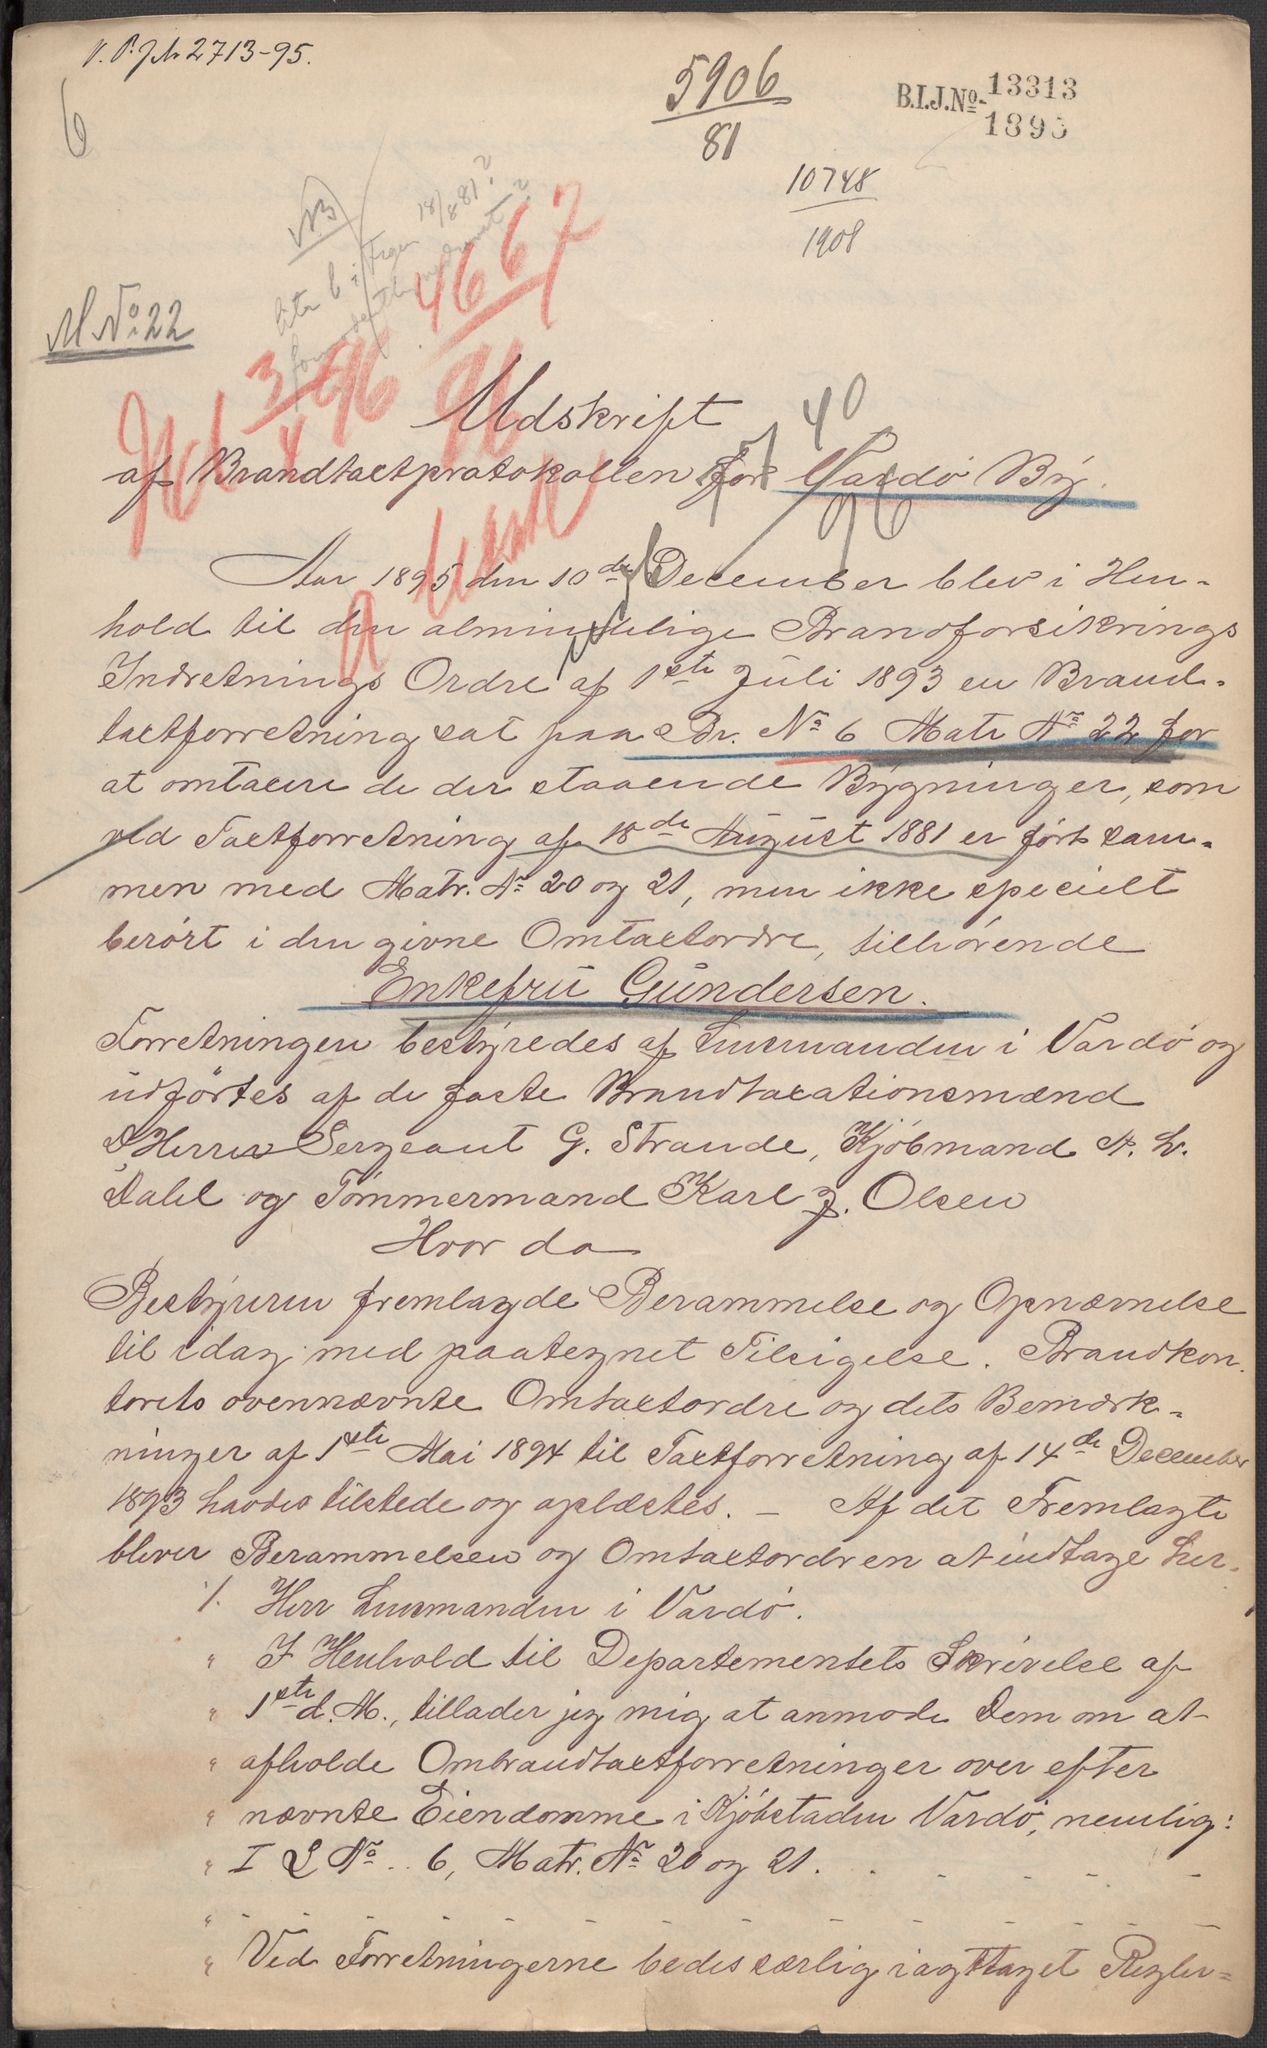 V. P. J No 2713-95.
6
5906
81
B.I.J.No 13313
1895
10748
1908
NB
18/8 81?
4667
96
M No 22
3/4 96
Udskrift
40
af Brandtaxtprotokollen for Vardø By.
96
Aar 1895 den 10de December blev i Hen-
hold til den almindelige Brandforsikrings
Indretnings Ordre af 1ste Juli 1893 en Brand-
taxtforretning sat paa Br. No 6 Matr Nr 22 for
at omtaxere de der staaende Bygninger, som
ved Taxtforretning af 18de August 1881 er ført sam-
men med Matr. Nr 20 og 21, men ikke specielt
berørt i den givne Omtaxtordre, tilhørende
Enkefru Gundersen.
Forretningen bestyredes af Lensmanden i Vardø og
udførtes af de faste Brandtaxationsmænd
D'Herrer Sergeant G. Strande, Kjøbmand A. L.
Dahl og Tømmermand Karl J. Olsen
Hvor da
Bestyreren fremlagde Berammelse og Opnævnelse
til idag med paategnet Tilsigelse. Brandkon-
torets ovennævnte Omtaxtordre og dets Bemærk-
ninger af 1ste Mai 1894 til Taxtforretning af 14de December
1893 havdes tilstede og oplæstes. — Af det Fremlagte
bliver Berammelsen og Omtaxtordren at indtage her.
./. Herr Lensmanden i Vardø.
" I Henhold til Departementets Skrivelse af
" 1ste d. M., tillader jeg mig at anmode Dem om at
" afholde Ombrandtaxtforretninger over efter
" nævnte Eiendomme i Kjøbstaden Vardø, nemlig:
" I L No .. 6, Matr. Nr 20 og 21. . - - - - -
" - - - - - - - - - - - - -
" Ved Forretningerne bedes særlig iagttaget Regler-